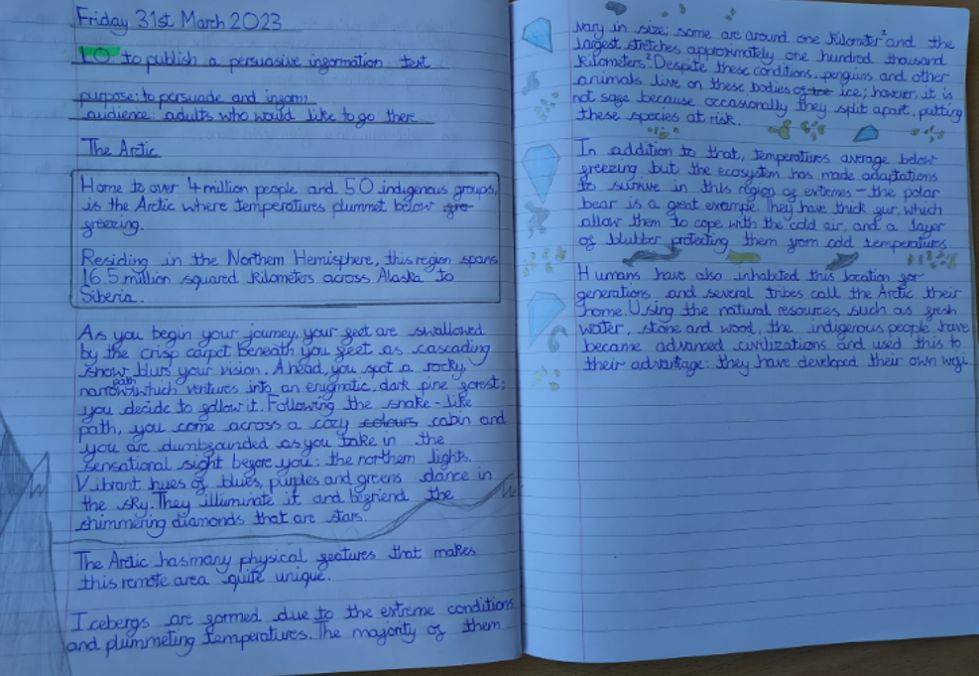 Friday 31st March 2023
LO: to publish a persuasive information text
purpose: to persuade and inform
audience: adults who would like to go there
The Arctic
Home to over 4 million people and 50 indigenous groups,
is the Arctic where temperatures plummet below fre
freezing.
Residing in the Northern Hemisphere, this region spans
16.5 million squared kilometers across Alaska to
Siberia.
As you begin your journey, your feet are swallowed
by the crisp carpet beneath you feet as cascading
snow blurs your vision. Ahead, you spot a rocky,
narrow path which ventures into an enigmatic, dark pine forest;
you decide to follow it. Following the snake-like
path, you come across a cozy colours cabin and
you are dumbfounded as you take in the
sensational sight before you: the northern lights.
Vibrant hues of blues, purples and greens dance in
the sky. They illuminate it and befriend the
shimmering diamonds that are stars.
The Arctic has many physical features that makes
this remote area quite unique.
Icebergs are formed due to the extreme conditions
and plummeting temperatures. The majority of them
vary in size; some are around one kilometer² and the
largest stretches approximately one hundred thousand
kilometers.² Despite these conditions, penguins and other
animals live on these bodies of the ice; however, it is
not safe because occasionally they split apart, putting
these species at risk.
In addition to that, temperatures average below
freezing, but the ecosystem has made adaptations
to survive in this region of extremes - the polar
bear is a great example. They have thick fur, which
allow them to cope with the cold air, and a layer
of blubber protecting them from cold temperatures.
Humans have also inhabited this location for
generations, and several tribes call the Arctic their
home. Using the natural resources such as fresh
water, stone and wood, the indigenous people have
became advanced civilizations and used this to
their advantage: they have developed their own